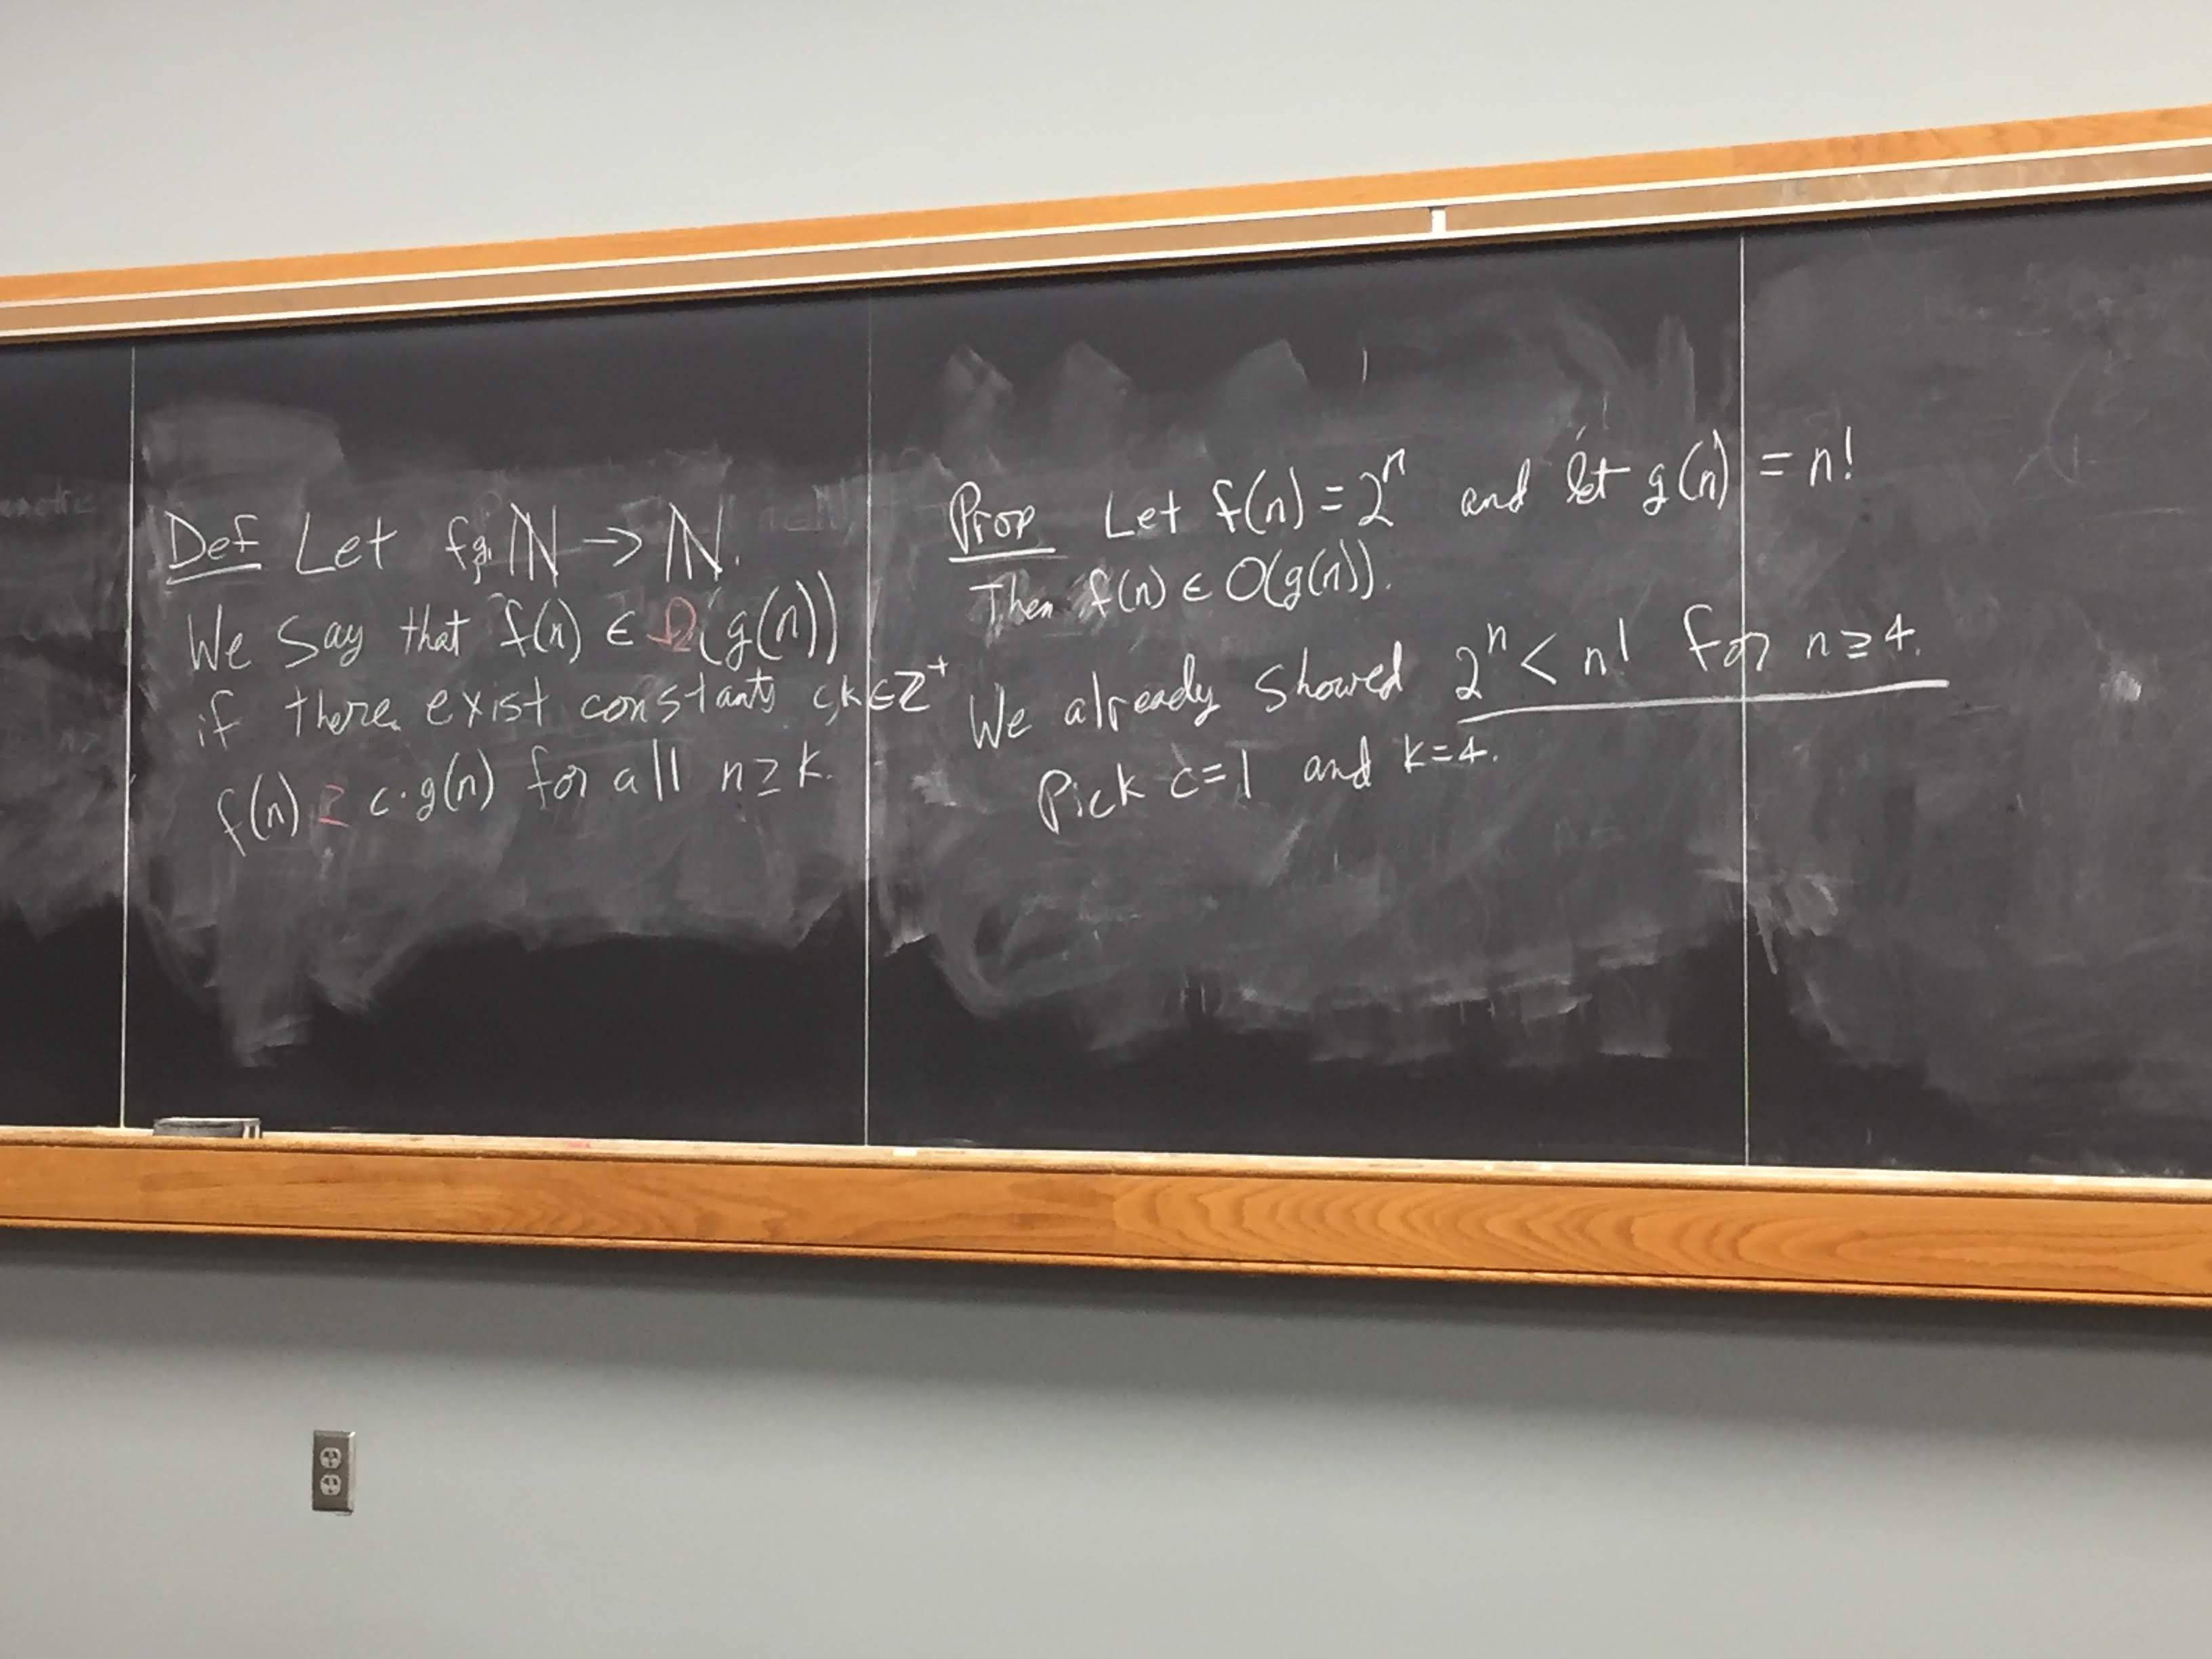 Def Let f,g: ℕ → ℕ.
We say that f(n) ∈ Ω(g(n))
if there exist constants c,k ∈ ℤ⁺
f(n) ≥ c·g(n) for all n ≥ k.
Prop Let f(n) = 2ⁿ and let g(n) = n!
Then f(n) ∈ O(g(n)).
We already showed 2ⁿ < n! for n ≥ 4.
Pick c=1 and k=4.